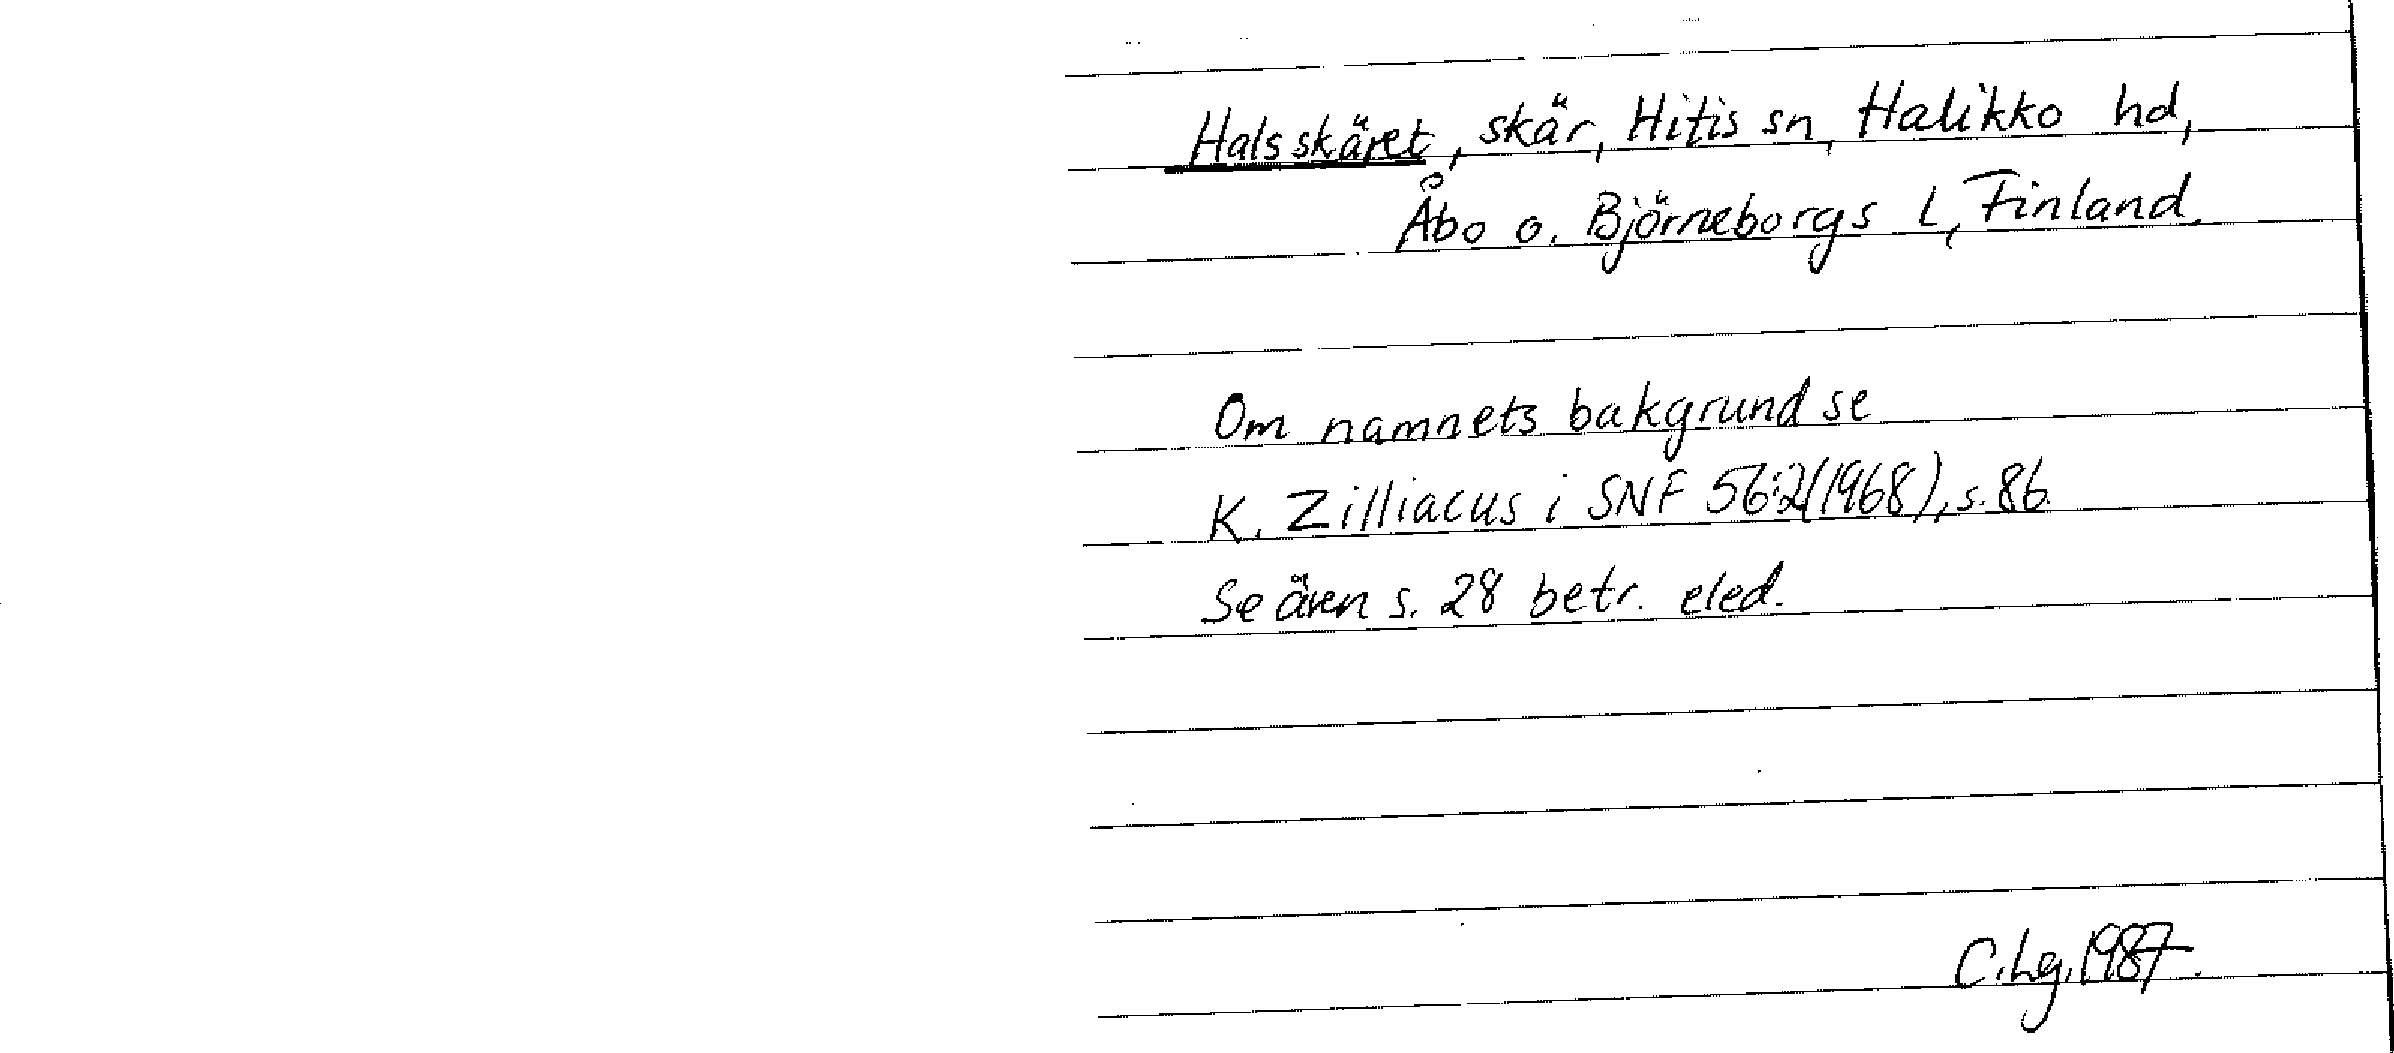 Halsskäret, skär, Hitis sn, Halikko hd,
Åbo o. Björneborgs L, Finland.
Om namnets bakgrund se
K. Zilliacus i SNF 56:2(1968), s. 86.
Se även s. 28 betr. eled.
C.Lg.1987.